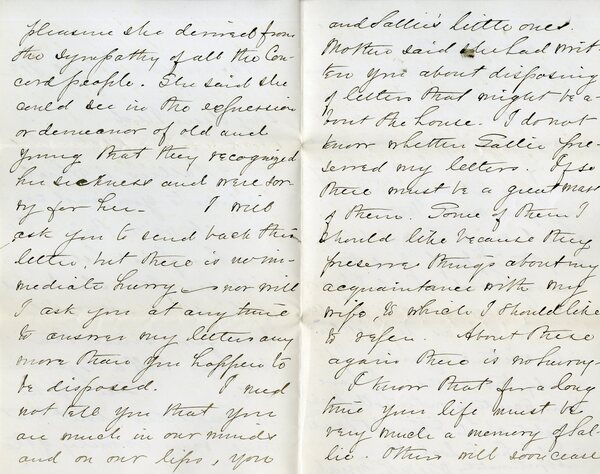 pleasure she derived from
the sympathy of all the Con-
cord people. She said she
could see in the expression
or demeanor of old and
young that they recognized
her sickness and were sor-
ry for her. I will
ask you to send back this
letter, but there is no im-
mediate hurry, nor will
I ask you at any time
to answer my letters any
more than you happen to
be disposed. I need
not tell you that you
are much in our minds
and on our lips, you
and Sallie's little ones.
Mother said she had writ-
ten you about disposing
of letters that might be a-
bout the house. I do not
know whether Sallie pre-
served my letters. If so
there must be a great mass
of them. Some of them I
should like because they
preserve things about my
acquaintance with my
wife, to which I should like
to refer. About these
again there is no hurry.
I know that for a long
time your life must be
very much a memory of Sal-
lie. Others will soon cease